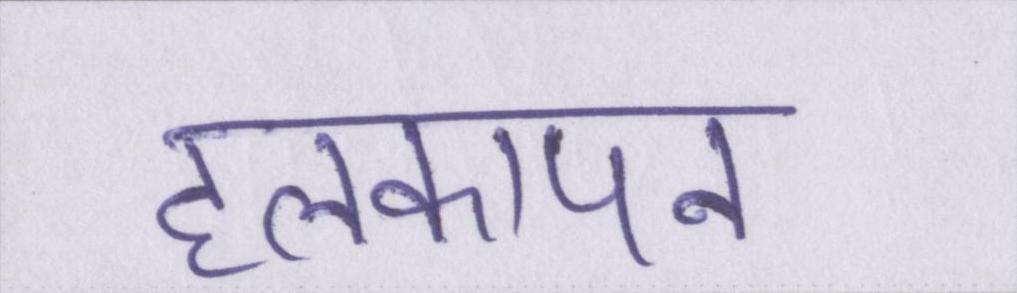 हलकापन